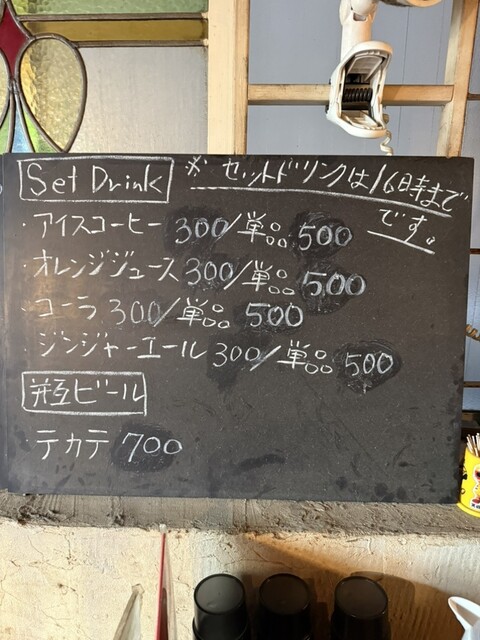 Set Drink ※ セットドリンクは16時まで
です。
・アイスコーヒー 300/単品 500
・オレンジジュース 300/単品 500
・コーラ 300/単品 500
・ジンジャーエール 300/単品 500
瓶ビール
テカテ 700